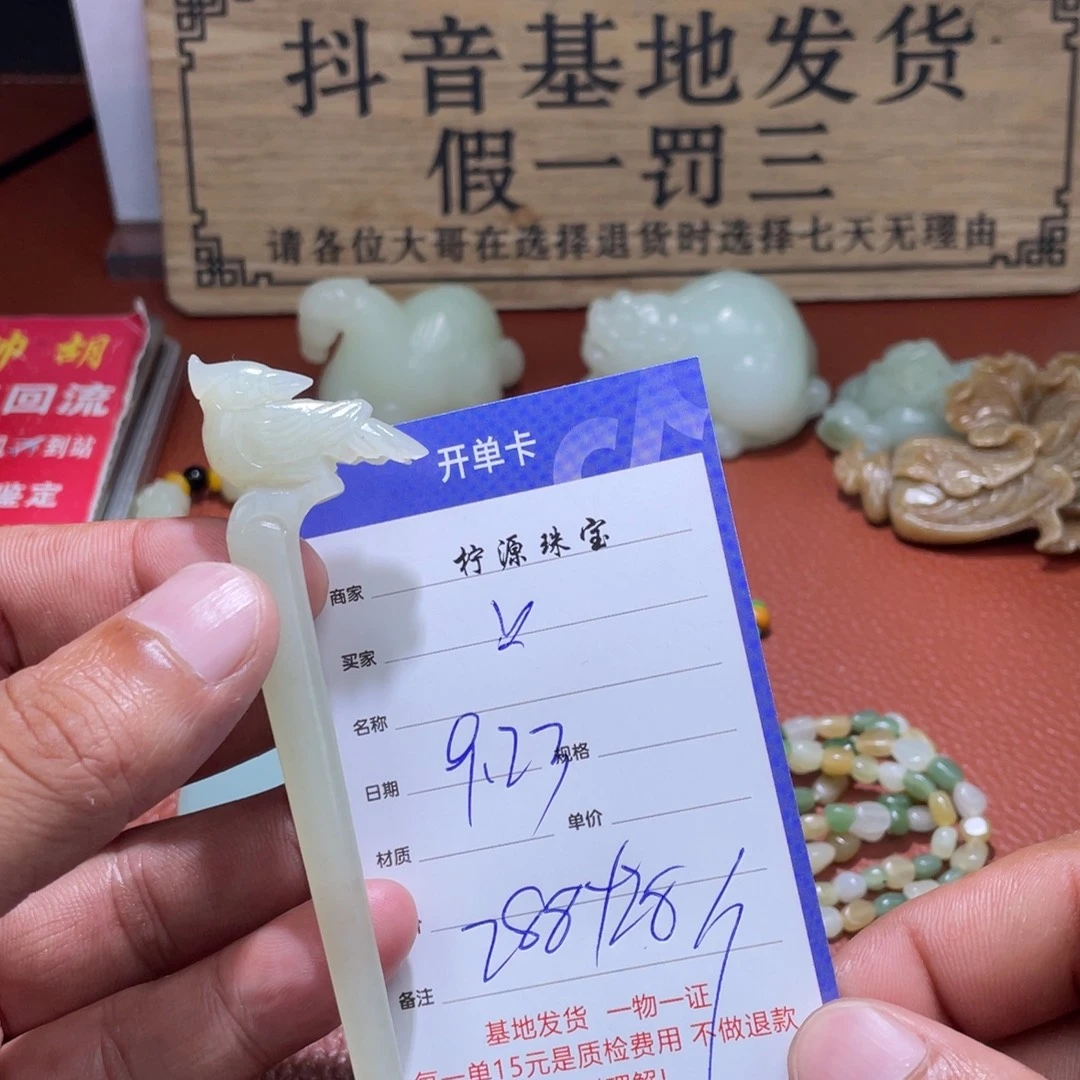 抖音基地发货
假一罚三
请各位大哥在选择退货时选择七天无理由
胡
回流
到站
鉴定
开单卡
商家 柠源珠宝
买家
名称
日期 9.27 规格
材质 单价
288+28
备注
基地发货 一物一证
每一单15元是质检费用 不做退款